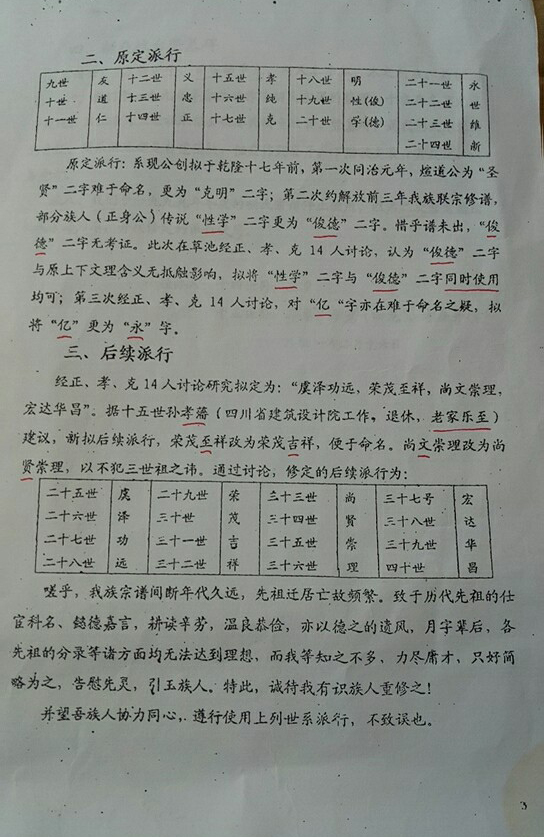 二、原定派行
九世 友 十二世 义 十五世 孝 十八世 明 二十一世 永
十世 道 十三世 忠 十六世 纯 十九世 性(俊) 二十二世 世
十一世 仁 十四世 正 十七世 克 二十世 学(德) 二十三世 维
二十四世 新
原定派行：系现公创拟于乾隆十七年前，第一次同治元年，煊道公为“圣
贤”二字难于命名，更为“克明”二字；第二次约解放前三年我族联宗修谱，
部分族人（正身公）传说“性学”二字更为“俊德”二字。惜乎谱未出，“俊
德”二字无考证。此次在草池经正、孝、克14人讨论，认为“俊德”二字
与原上下文理含义无抵触影响，拟将“性学”二字与“俊德”二字同时使用
均可；第三次经正、孝、克14人讨论，对“亿“字亦在难于命名之疑，拟
将“亿”更为“永”字。
三、后续派行
经正、孝、克14人讨论研究拟定为：“虞泽功远，荣茂至祥，尚文崇理，
宏达华昌”。据十五世孙孝藩（四川省建筑设计院工作，退休，老家乐至）
建议，新拟后续派行，荣茂至祥改为荣茂吉祥，便于命名。尚文崇理改为尚
贤崇理，以不犯三世祖之讳。通过讨论，修定的后续派行为：
二十五世 虞 二十九世 荣 三十三世 尚 三十七号 宏
二十六世 泽 三十世 茂 三十四世 贤 三十八世 达
二十七世 功 三十一世 吉 三十五世 崇 三十九世 华
二十八世 远 三十二世 祥 三十六世 理 四十世 昌
嗟乎，我族宗谱间断年代久远，先祖迁居亡故频繁。致于历代先祖的仕
宦科名、懿德嘉言，耕读辛劳，温良恭俭，亦以德之的遗风，月字辈后，各
先祖的分录等诸方面均无法达到理想，而我等知之不多，力尽庸才，只好简
略为之，告慰先灵，引玉族人。特此，诚待我有识族人重修之！
并望吾族人协力同心，遵行使用上列世系派行，不致误也。
3